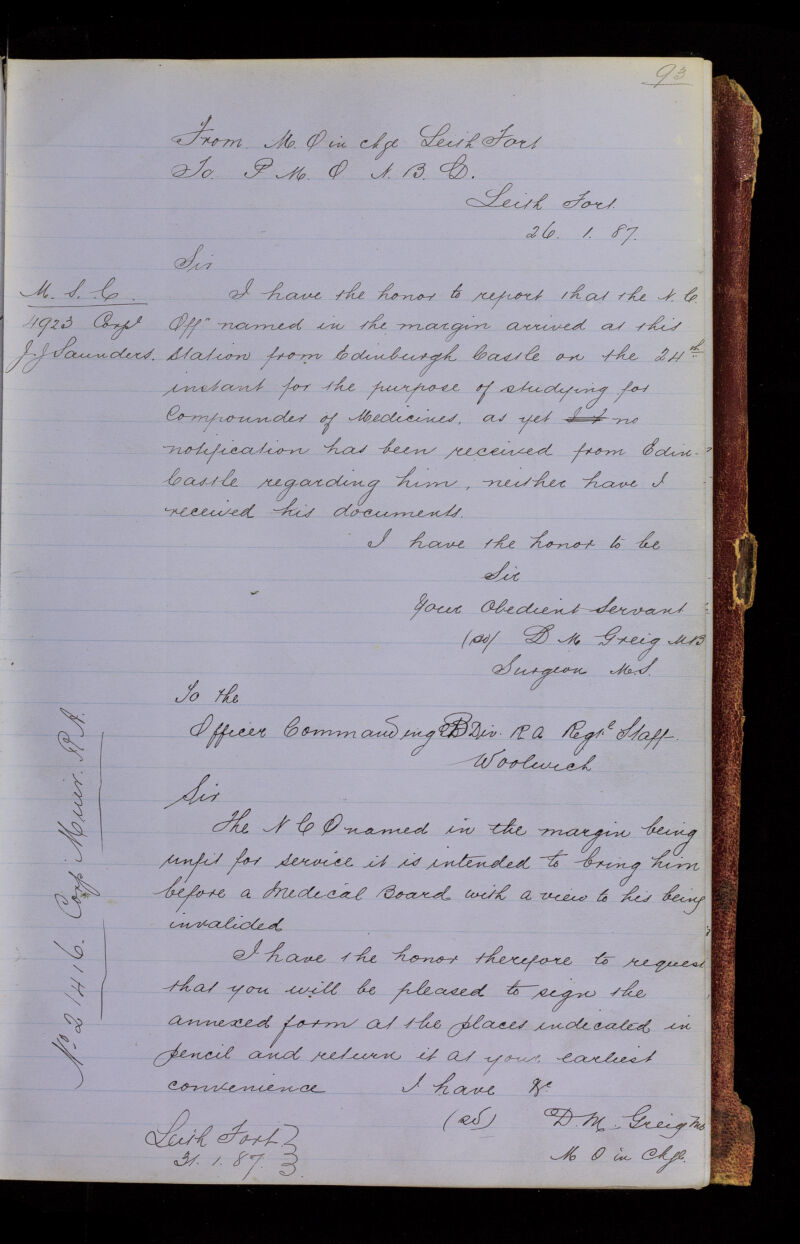 93
From M. O in chge Leith Fort
To. P. M. O N. B. D.
Leith Fort.
26. 1. 87.
Sir
M. S. C.
4923 Corpl
J. J Saunders.
I have the honor to report that the N. C.
Offr named in the margin arrived at this
station from Edinburgh Castle on the 24th
instant for the purpose of studying for
Compounder of Medicines, as yet no
notification has been received from Edin-
Castle regarding him, neither have I
received his documents.
I have the honor to be
Sir
Your Obedient Servant
(sd) D M Greig MB
Surgeon M.S.
To the
Officer Commanding Div. RA Regtl Staff
Woolwich
Sir
No 21416. Corpl Muir. R.A.
The N C O named in the margin being
unfit for service it is intended to bring him
before a Medical Board with a view to his being
invalided
I have the honor therefore to request
that you will be pleased to sign the
annexed form at the places indicated in
pencil and return it at your earliest
convenience I have &c
(sd) D. M. Greig MB
M O in Chge.
Leith Fort
31. 1. 87.